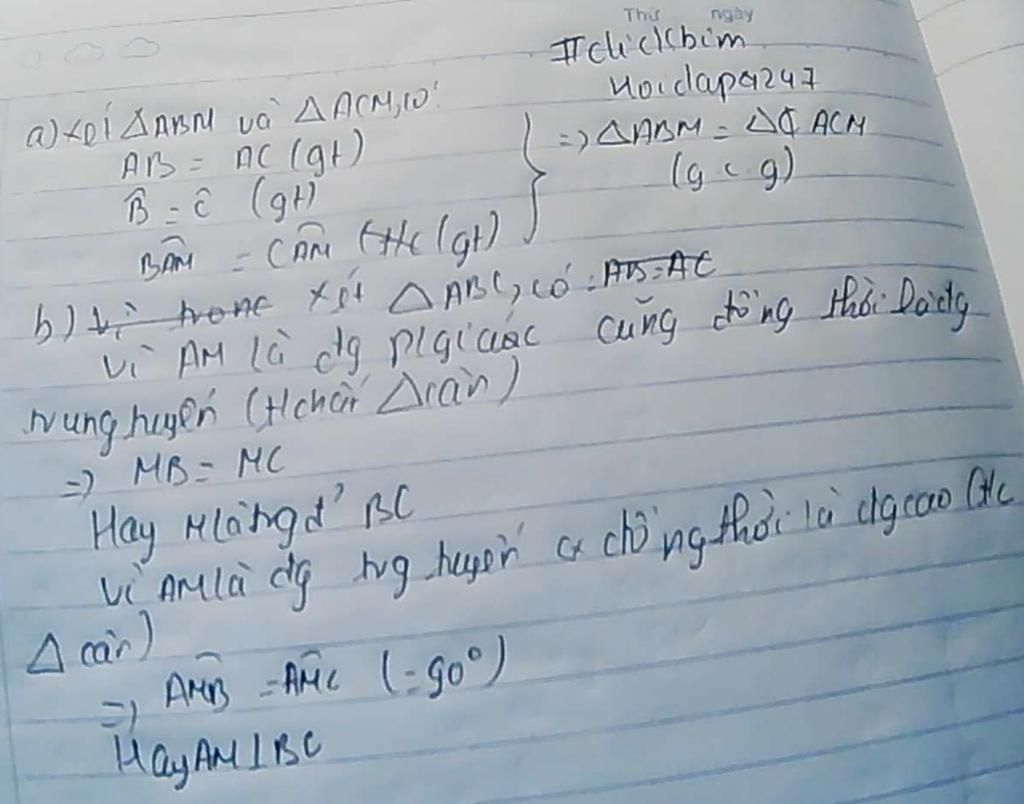 Thứ ngày
#clickbim
Hoidap247
a) Xét ΔABM và ΔACM, có:
AB = AC (gt)
B̂ = Ĉ (gt)
BAM = CAM (gt)
=> ΔABM = Δ ACM
(g c g)
b) Vì trong xét ΔABC, có: AB = AC
Vì AM là đg p/giác cũng đồng thời là đg
trung tuyến (t/chất Δcân)
=> MB = MC
Hay M là tr.đ' BC
Vì AM là đg trg tuyến đồng thời là đg cao (t/c
Δ cân)
=> AMB = AMC (= 90°)
Hay AM ⊥ BC